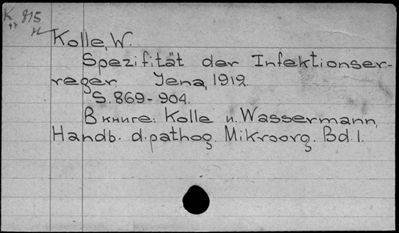 K 815
Kolle, W.
Spezifität der Infektionser-
reger Jena, 1912
S. 869-904.
В книге: Kolle и. Wassermann,
Handb. d. pathog. Mikroorg. Bd. 1.